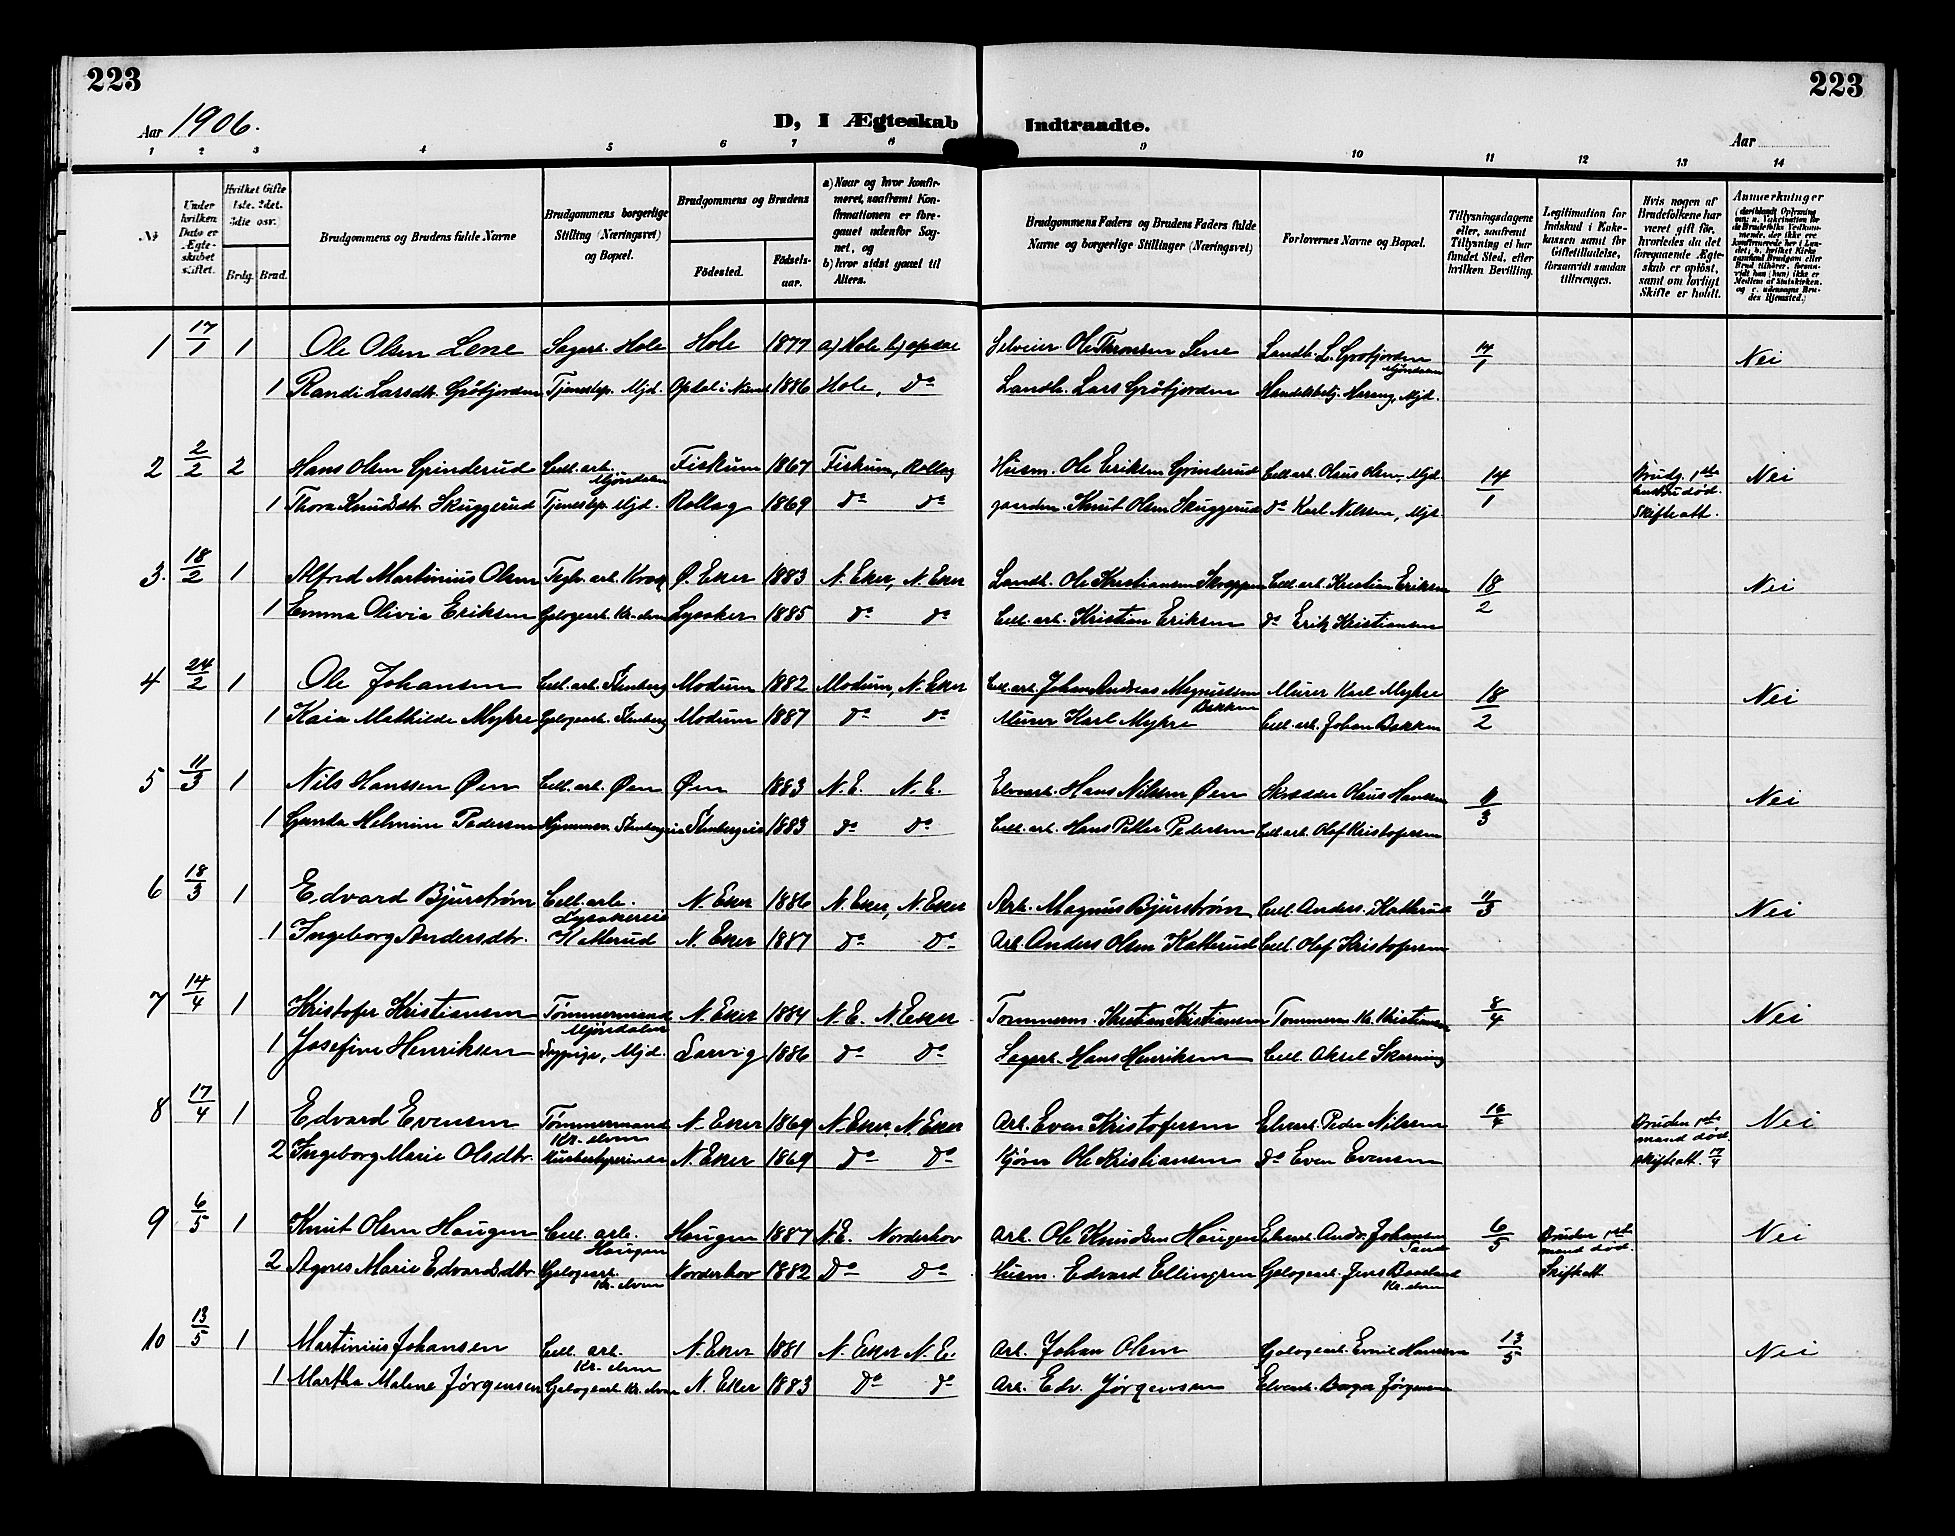 223
223
Aar 1906.
D, I Ægteskab Indtraadte.
Aar
1 2 3 4 5 6 7 8 9 10 11 12 13 14
№
Under hvilken Dato er Ægteskabet stiftet.
Hvilket Gifte 1ste, 2det, 3die osv.
Brdg. Brud.
Brudgommens og Brudens fulde Navne
Brudgommens borgerlige Stilling (Næringsvei) og Bopæl.
Brudgommens og Brudens
Födested.
Födselsaar.
a) Naar og hvor konfirmeret, saafremt Konfirmationen er foregaaet udenfor Sognet, og
b) hvor sidst gaaet til Alters.
Brudgommens Faders og Brudens Faders fulde Navne og borgerlige Stillinger (Næringsvei)
Forlovernes Navne og Bopæl.
Tillysningsdagene eller, saafremt Tillysning ei har fundet Sted, efter hvilken Bevilling.
Legitimation for Indskud i Enkekassen samt for Giftetilladelse, forsaavidt saadan tiltrænges.
Hvis nogen af Brudefolkene har været gift för, hvorledes da det foregaaende Ægteskab er oplöst, samt om lovligt Skifte er holdt.
Anmærkninger
1 17/1 1 Ole Olsen Lene Sagarb. Hole Hole 1877 a) Hole b) opdal Selveier Ole Thronsen Lene Landh. L. Gröfjorden Mjöndalen 14/1 Nei
1 Randi Larsdtr. Gröfjorden Tjenestep. Mjd. Opdal i Numd 1886 Hole, Do Landh. Lars Gröfjorden Handelsbetj. Hareng, Mjd.
2 2/2 2 Hans Olsen Grinderud Cell. arb. Mjöndalen Fiskum 1867 Fiskum, Rollag Husm. Ole Eriksen Grinderud Cell arb. Olaus Olsen, Mjd. 14/1 Brudg. 1ste hustru död. Skifte att. Nei
1 Thora Knudsdtr. Skuggerud Tjenestep. Mjd. Rollag 1869 Do Do gaardm. Knut Olsen Skuggerud Do Karl Nilsen, Mjd.
3. 18/2 1 Alfred Martinius Olsen Teglv. arb. Krog Ø. Eker 1883 N. Eker, N. Eker Landh. Ole Kristiansen Skreppen Cell arb. Kristian Eriksen 18/2 Nei
1 Emma Olivia Eriksen Gjelogearb. Kr. elven Lysaker 1885 Do Do Cell. arb. Kristian Eriksen Do Erik Kristiansen
4 24/2 1 Ole Johansen Cell. arb. Stenberg Modum 1882 Modum, N. Eker Cell. arb. Johan Andreas Magnussen Bakken Murer Karl Myhre 18/2 Nei
1 Kaia Mathilde Myhre Gjelogearb. Stenberg Modum 1887 Do Do Murer Karl Myhre Cell. arb. Johan Bakken
5 11/3 1 Nils Hanssen Øen Cell. arb. Øen Øen 1883 N. E. N. E. Elvearb. Hans Nilsen Øen Skrædder Olaus Hansen 11/3 Nei
1 Gunda Helmine Pedersen Hjemmev. Stenbergeie Stenbergeie 1883 Do Do Cell. arb. Hans Petter Pedersen Cell arb. Olaf Kristofersen
6 18/3 1 Edvard Bjurström Cell. arb. Lysakereie N. Eker 1886 N. Eker, N. Eker Arb. Magnus Bjurström Cell. Anders Katterud 11/3 Nei
1 Ingeborg Andersdtr. Katterud N. Eker 1887 Do Do Arb. Anders Olsen Katterud Cell. Olaf Kristofersen
7 14/4 1 Kristofer Kristiansen Tömmermand Mjöndalen N. Eker 1884 N. E. N. Eker Tömmerm. Kristian Kristiansen Tömmerm. Kr. Kristiansen 8/4 Nei
1 Josefine Henriksen Sypige, Mjd. Larvig 1886 Do Do Sagarb. Hans Henriksen Cell. Aksel Skarning
8 17/4 1 Edvard Evensen Tömmermand Kr. elven N. Eker 1869 N. Eker, N. Eker Arb. Even Kristofersen Elvearb. Peder Nilsen 16/4 Bruden 1ste mand död. Skifte att. 17/4 Nei
2 Ingeborg Marie Olsdtr. Husbestyrerinde N. Eker 1869 Do Do Kjörer Ole Kristiansen Do Even Evensen
9 6/5 1 Knut Olsen Haugen Cell. arb. Haugen Haugen 1887 N. E. Norderhov Arb. Ole Knudsen Haugen Elvearb. Andr. Johansen Sand 6/5 Bruden 1ste mand död. Skifteatt Nei
2 Agnes Marie Edvardsdtr. Gjelogearb. Kr. elven Norderhov 1882 Do Do Husm. Edvard Ellingsen Gjelogearb. Jens Kr. elven
10 13/5 1 Martinius Johansen Cell. arb. Kr. elven N. Eker 1881 N. Eker N. E. Arb. Johan Olsen Gjelogearb. Emil Hansen 13/5 Nei
1 Martha Malene Jörgensen Gjelogearb. Kr. elven N. Eker 1883 Do Do Arb. Edv. Jörgensen Elvearb. Borger Jörgensen